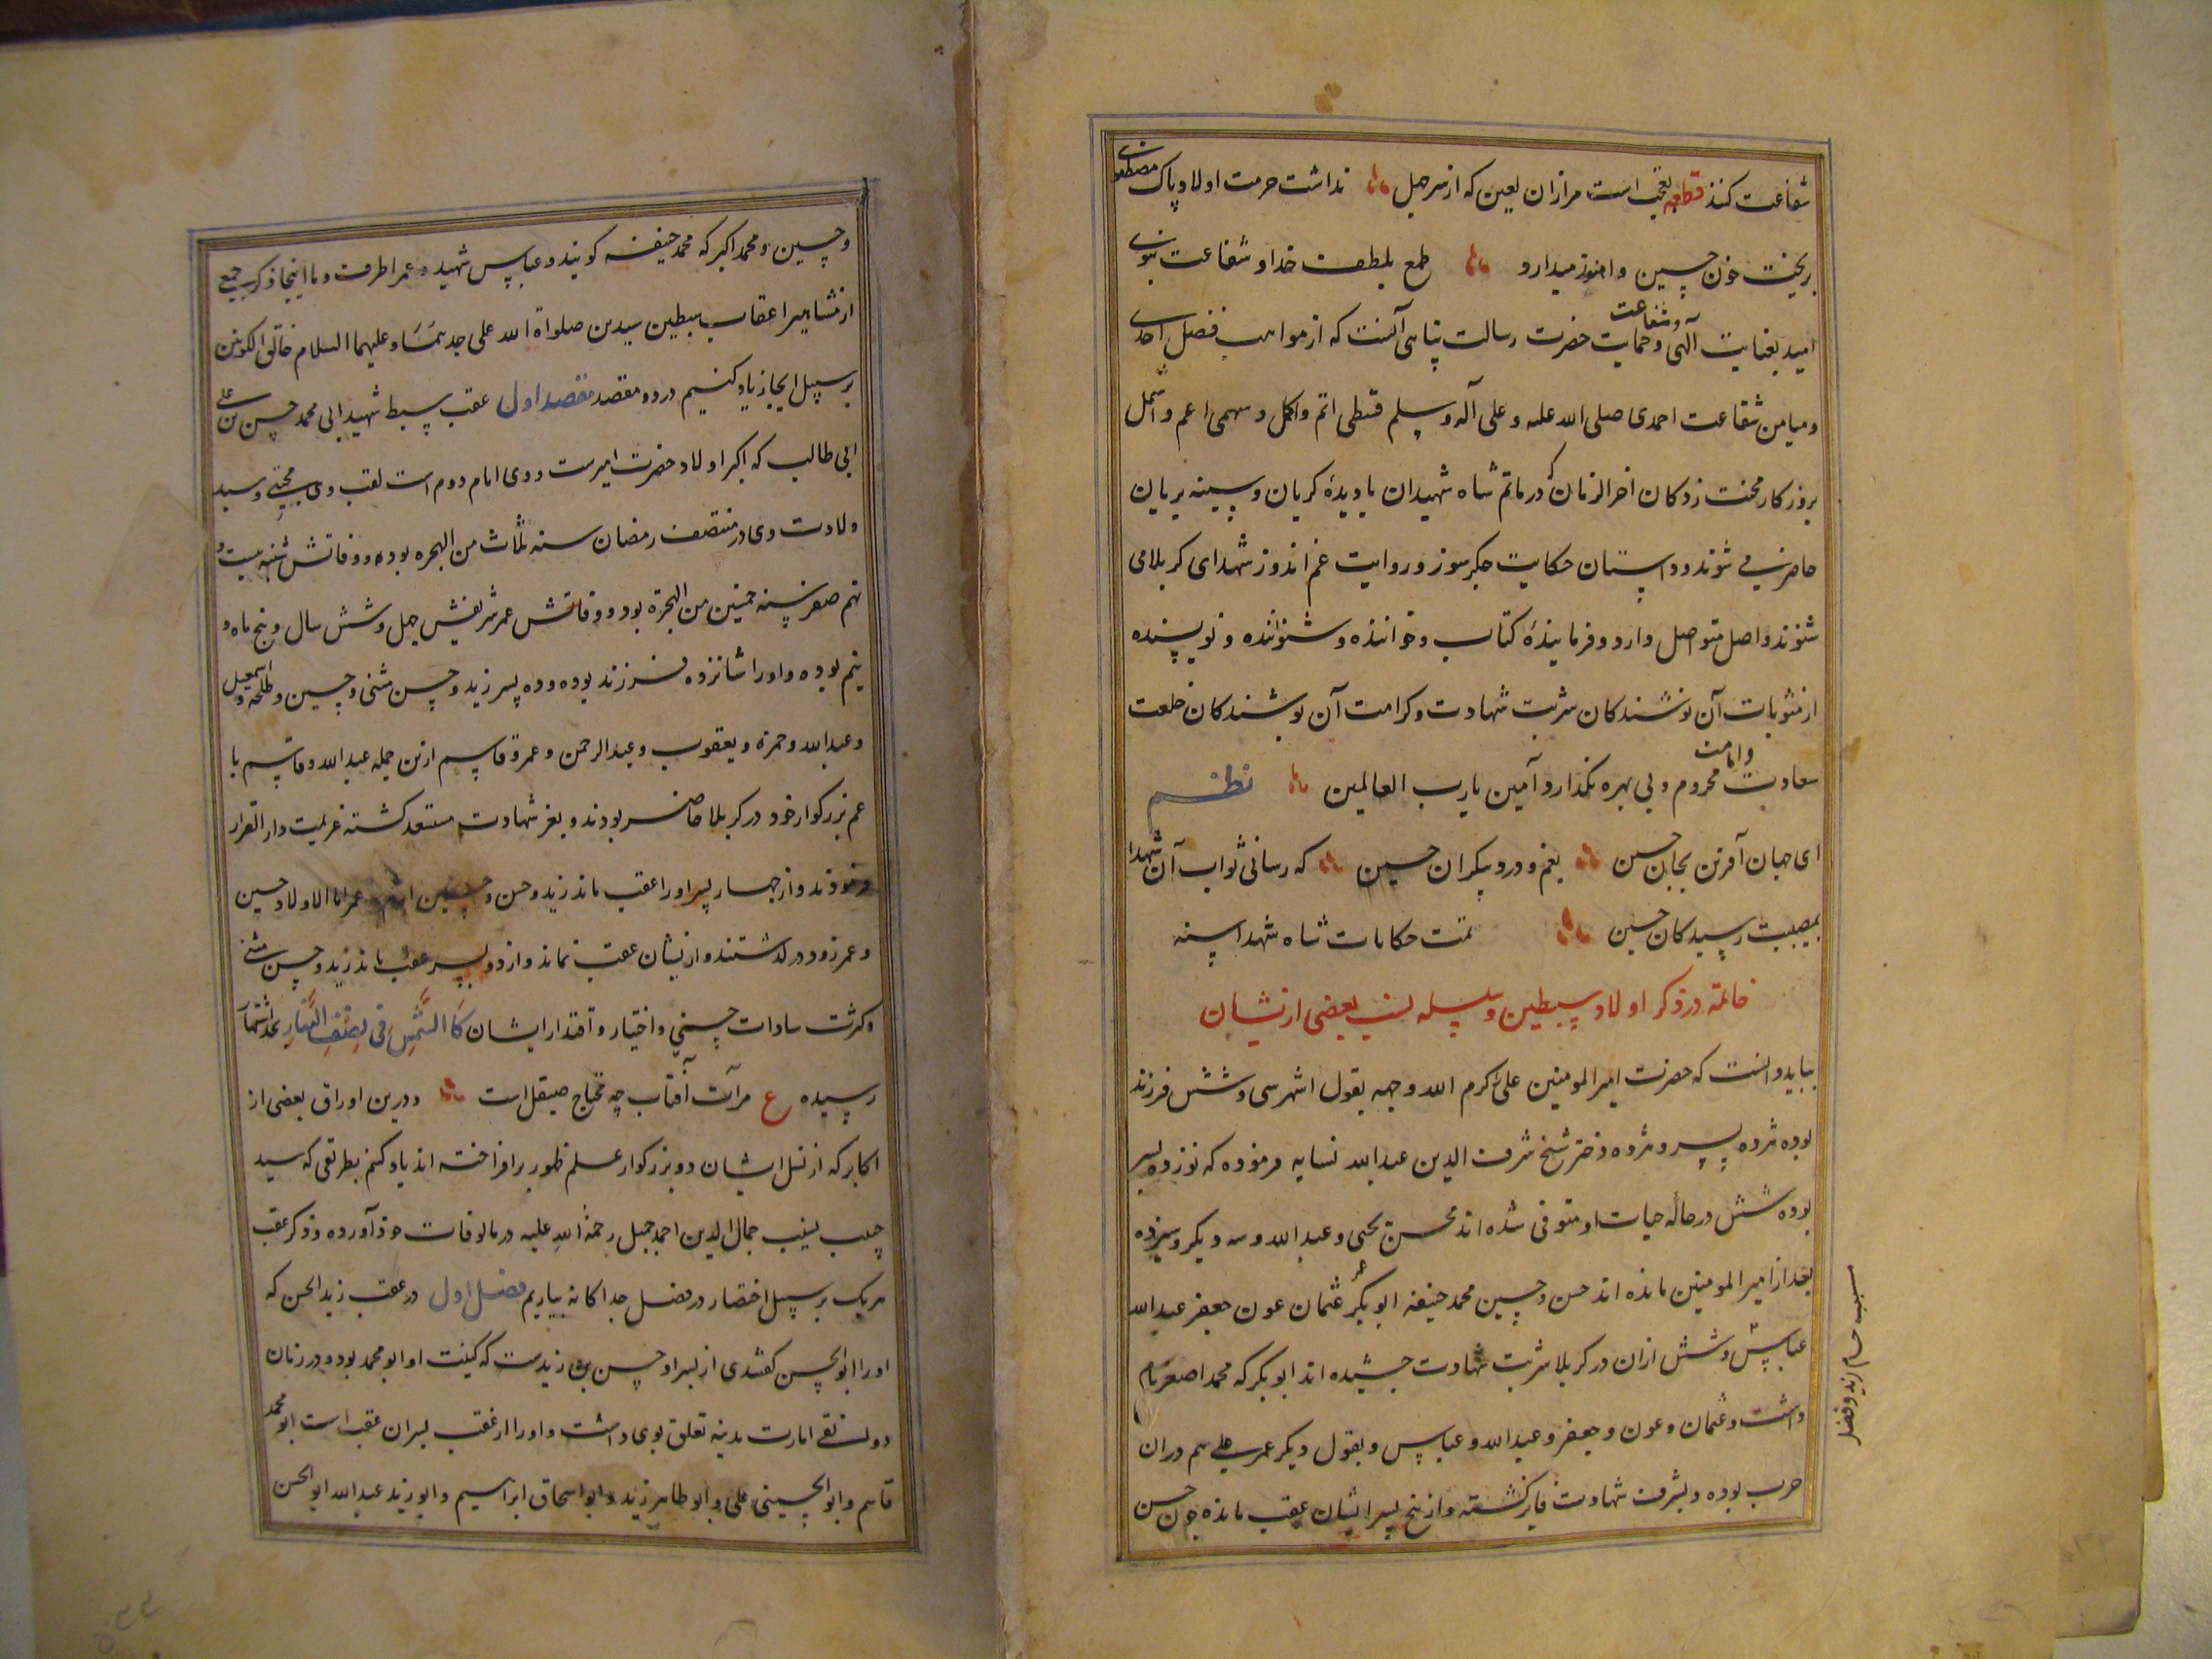 شفاعت کنند قطعه عجب است مرا زان لعین که از سر جهل نداشت حرمت اولاد پاک مصطفوی
بریخت خون حسین و هنوز میدارد طمع بلطف خدا و شفاعت نبوی
امید بعنایت آلهی و حمایت و شفاعت حضرت رسالت پناهی آنست که از مواهب فضل احدی
و میامن شفاعت احمدی صلی الله علیه و علی آله و سلم قسطی اتم و اکمل و سهمی اعم و اشمل
بروزکار محنت زدکان اخر الزمان که در ماتم شاه شهیدان با دیدۀ کریان و سینه بریان
حاضر می شوند و داستان حکایت جکرسوز و روایت غم اندوز شهدای کربلا می
شنوند واصل متواصل دارد و فرمایندۀ کتاب و خواننده و شنونده و نویسنده
از مثوبات آن نوشندکان شربت شهادت و کرامت آن پوشندکان خلعت
سعادت و امامت محروم و بی بهره نکذارد آمین یا رب العالمین نظم
ای جهان آفرین بجان حسین بغم و درد بیکران حسین که رسانی ثواب آن شهدا
بمصیبت رسیدکان حسین تمت حکایات شاه شهدا
خاتمه در ذکر اولاد سبطین و سلسله نسب بعضی از یشان
بباید دانست که حضرت امیر المومنین علی کرم الله وجهه بقول اشهر سی و شش فرزند
بوده هژده پسر و هژده دختر شیخ شرف الدین عبد الله نسابه فرموده که نوزده پسر
بوده شش در حاله حیات او متوفی شده اند محسن یحیی و عبد الله و سه دیکر و سیزده
بعد از امیر المومنین مانده اند حسن و حسین محمد حنیفه ابو بکر عمر عثمان عون جعفر عبد الله
عباس و شش ازان در کربلا شربت شهادت چشیده اند ابو بکر که محمد اصغر نام
داشت و عثمان و عون و جعفر و عبد الله و عباس و بقول دیکر عمر علی هم دران
حرب بوده و بشرف شهادت فایز کشته و از پنج پسر ایشان عقب مانده چون حسن
و حسین و محمد اکبر که محمد حنیفه کویند و عباس شهید و عمر اطرف و ما اینجا ذکر جمعی
از مشاهیر اعقاب سبطین سیدین صلواة الله علی جدهما و علیهما السلام خالق الکونین
بر سبیل ایجاز یاد کنیم در دو مقصد مقصد اول عقب سبط شهید ابی محمد حسن بن علی
ابی طالب که اکبر اولاد حضرت امیرست و وی امام دوم است لقب وی مجتبی و سید
ولادت وی در منتصف رمضان سنه ثلاث من الهجره بوده و وفاتش شنبه بیست و
نهم صفر سنه خمسین من الهجرة بود و وفاتش عمر شریفش چهل و شش سال و پنج ماه و
نیم بوده و او را شانزده فرزند بوده و ده پسر زید و حسن مثنی و حسین و طلحه و اسمعیل
و عبد الله و حمزه و یعقوب و عبد الرحمن و عمر و قاسم ازین جمله عبد الله و قاسم با
عم بزرکوار خود در کربلا حاضر بودند و بعز شهادت مستعد کشته عزیمت دار القرار
فرمودند و از چهار پسر او را عقب ماند زید و حسن و حسین عمر اما اولاد حسین
و عمر زود درکذشتند و ازیشان عقب نماند و از دو پسر عقب ماند زید و حسن مثنی
و کثرت سادات حسنی و اختیار و اقتدار ایشان کَا الشَّمسِ فی نِصفِ النَّهَارِ بحد اشتهار
رسیده ع مرآت آفتاب چه محتاج صیقل است و درین اوراق بعضی از
اکابر که از نسل ایشان دو بزرکوار علم ظهور برافراخته اند یاد کنم بطریقی که سید
نسب جمال الدین احمد رحمة الله علیه در مالوفات خود آورده و ذکر عقب
هر یک بر سبیل اختصار در فصل جداکانه بیاریم فصل اول در عقب زید الحسن که
او را ابو الحسن کفتندی از پسر او حسن بن زیدست که کنیت او ابو محمد بود و در زمان
امارت مدینه تعلق بوی داشت و او را از عقب پسران عقب است ابو محمد
قاسم و ابو الحسین علی و ابو طاهر زید و ابو اسحاق ابراهیم و ابو زید عبد الله ابو الحسن